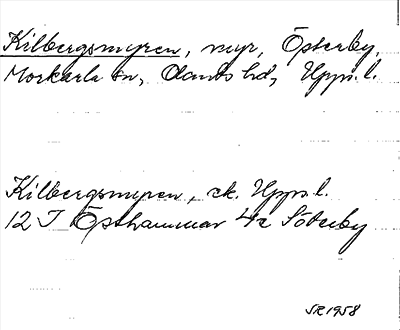 Kilbergsmyren, myr, Österby,
Morkarla sn, Olands hd, Upps.l.
Kilbergsmyren, ek. Upps.l.
12 I Östhammar 4c Söderby
SR 1958